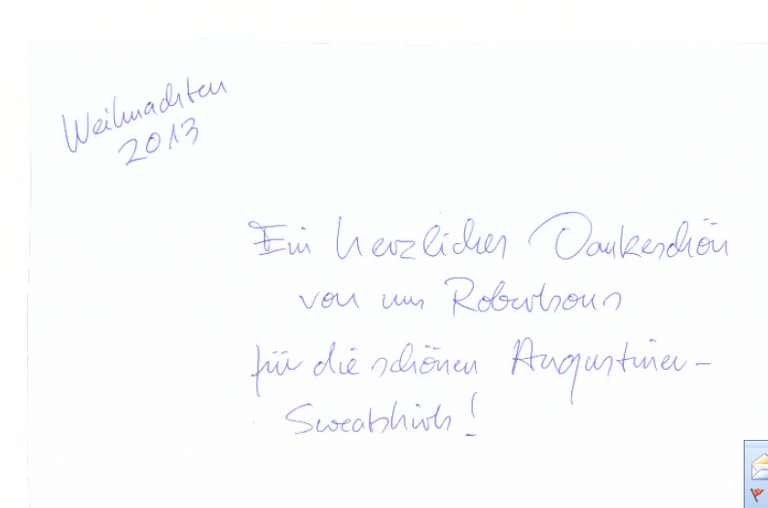 Weihnachten
2013
Ein herzliches Dankeschön
von uns Robertsons
für die schönen Augustiner-
Sweatshirts!